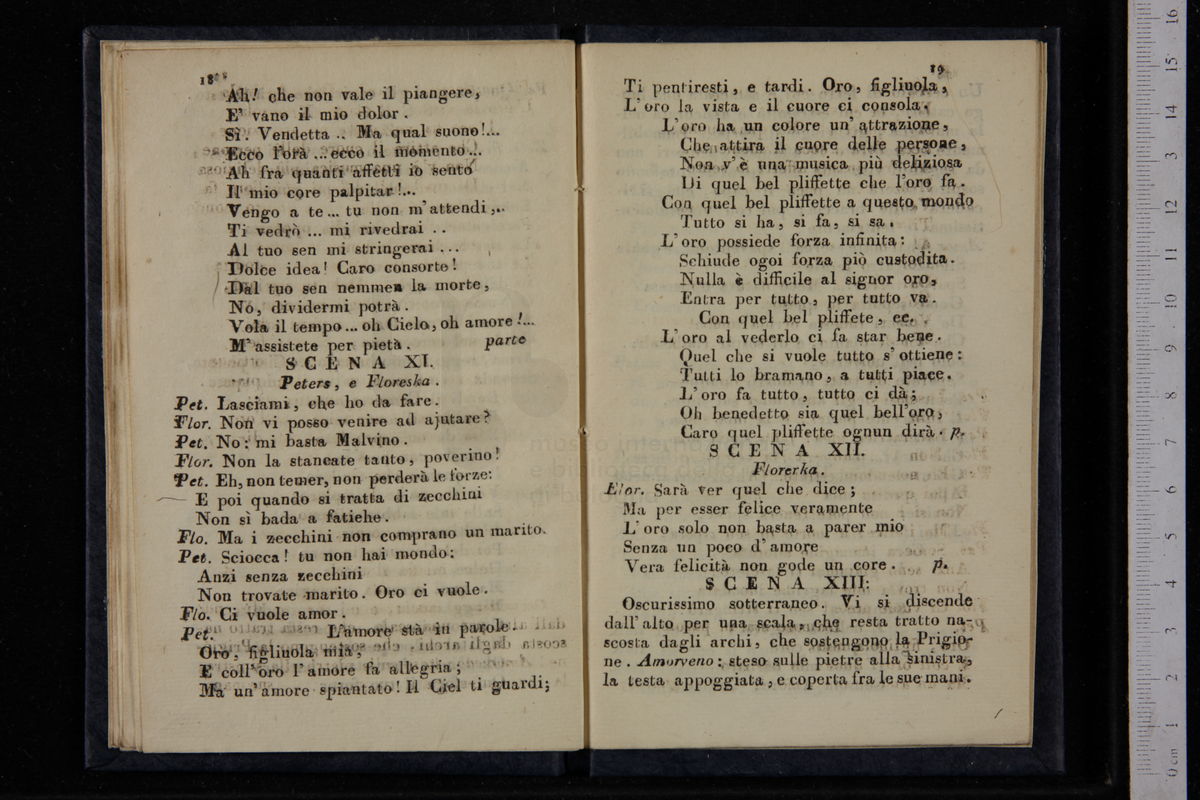 18
Ah! che non vale il piangere,
E' vano il mio dolor.
Sì. Vendetta .. Ma qual suono!...
Ecco l'ora ... ecco il momento...
Ah fra quanti affetti io sento
Il mio core palpitar!...
Vengo a te ... tu non m'attendi,..
Ti vedrò ... mi rivedrai . .
Al tuo sen mi stringerai ...
Dolce idea! Caro consorte!
Dal tuo sen nemmen la morte,
No, dividermi potrà.
Vola il tempo ... oh Cielo, oh amore!...
M'assistete per pietà. parte
SCENA XI.
Peters, e Floreska.
Pet. Lasciami, che ho da fare.
Flor. Non vi posso venire ad ajutare?
Pet. No: mi basta Malvino.
Flor. Non la stancate tanto, poverino!
Pet. Eh, non temer, non perderà le forze:
E poi quando si tratta di zecchini
Non sì bada a fatiehe.
Flo. Ma i zecchini non comprano un marito.
Pet. Sciocca! tu non hai mondo:
Anzi senza zecchini
Non trovate marito. Oro ci vuole.
Flo. Ci vuole amor.
Pet. L'amore stà in parole.
Oro, figliuola mia,
E coll'oro l'amore fa allegria;
Ma un'amore spiantato! Il Ciel ti guardi;
19
Ti pentiresti, e tardi. Oro, figliuola,
L'oro la vista e il cuore ci consola.
L'oro ha un colore un'attrazione,
Che attira il cuore delle persone,
Non v'è una musica più deliziosa
Di quel bel pliffette che l'oro fa.
Con quel bel pliffette a questo mondo
Tutto si ha, si fa, si sa.
L'oro possiede forza infinita:
Schiude ogoi forza piò custodita.
Nulla è difficile al signor oro,
Entra per tutto, per tutto va.
Con quel bel pliffete, ec.
L'oro al vederlo ci fa star bene.
Quel che si vuole tutto s'ottiene:
Tutti lo bramano, a tutti piace.
L'oro fa tutto, tutto ci dà;
Oh benedetto sia quel bell'oro,
Caro quel pliffette ognun dirà. p.
SCENA XII.
Florerka.
Flor. Sarà ver quel che dice;
Ma per esser felice veramente
L'oro solo non basta a parer mio
Senza un poco d'amore
Vera felicità non gode un core. p.
SCENA XIII:
Oscurissimo sotterraneo. Vi si discende
dall'alto per una scala, che resta tratto na-
scosta dagli archi, che sostengono la Prigio-
ne. Amorveno: steso sulle pietre alla sinistra,
la testa appoggiata, e coperta fra le sue mani.
0 cm 1 2 3 4 5 6 7 8 9 10 11 12 13 14 15 16